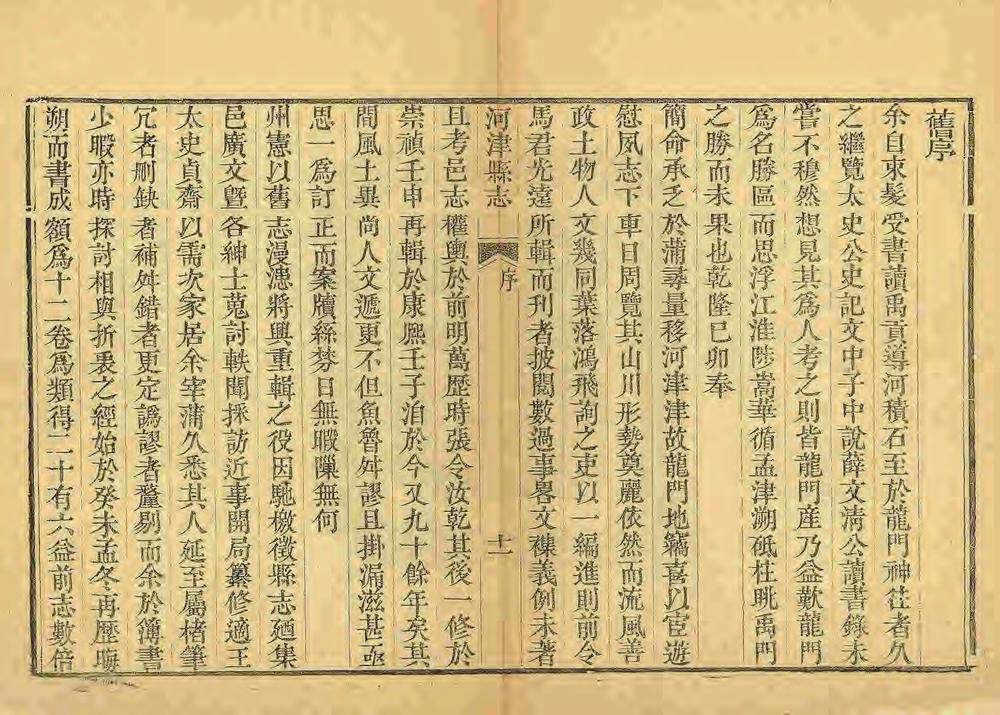 舊序
余自束髮受書讀禹貢導河積石至於龍門神往者久
之繼覽太史公史記文中子中說薛文淸公讀書錄未
嘗不穆然想見其爲人考之則皆龍門產乃益歎龍門
爲名勝區而思浮江淮陟嵩華循孟津溯砥柱眺禹門
之勝而未果也乾隆己卯奉
簡命承乏於蒲尋量移河津津故龍門地竊喜以宦遊
慰夙志下車日周覽其山川形勢奠麗依然而流風善
政土物人文幾同葉落鴻飛詢之吏以一編進則前令
馬君光遠所輯而刊者披閱數過事畧文㯿義例未著
河津縣志
序
十一
且考邑志權輿於前明萬歷時張令汝乾其後一修於
崇禎壬申再輯於康熙壬子洎於今又九十餘年矣其
間風土異尚人文遞更不但魚魯舛謬且掛漏滋甚亟
思一爲訂正而案牘絲棼日無暇隟無何
州憲以舊志漫漶將興重輯之役因馳檄徵縣志廼集
邑廣文曁各紳士蒐討軼聞採訪近事開局纂修適王
太史貞齋以需次家居余宰蒲久悉其人延至屬楮筆
冗者刪缺者補舛錯者更定譌謬者釐剔而余於簿書
少暇亦時探討相與折衷之經始於癸未孟冬再歷晦
朔而書成額爲十二卷爲類得二十有六益前志數倍